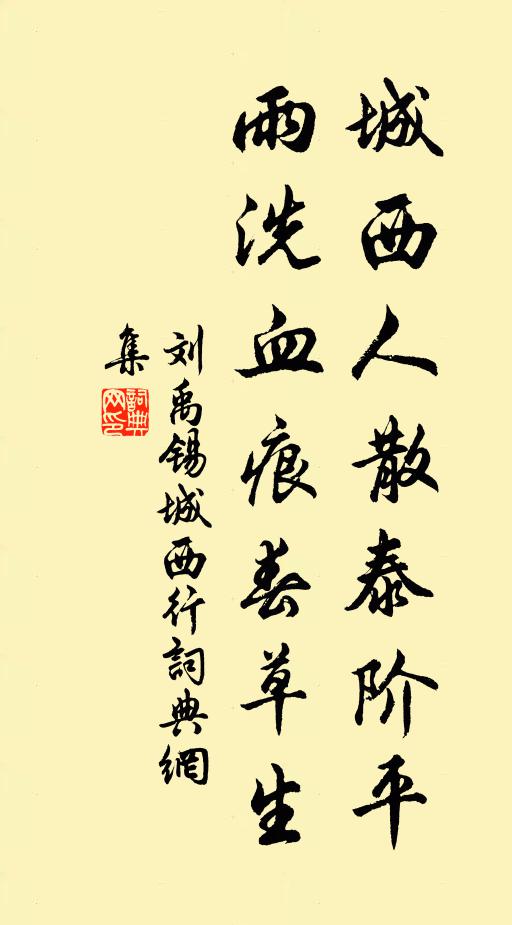 城西人散泰阶平
雨洗血痕春草生
刘禹锡城西行詞典網
集
詞典
网印